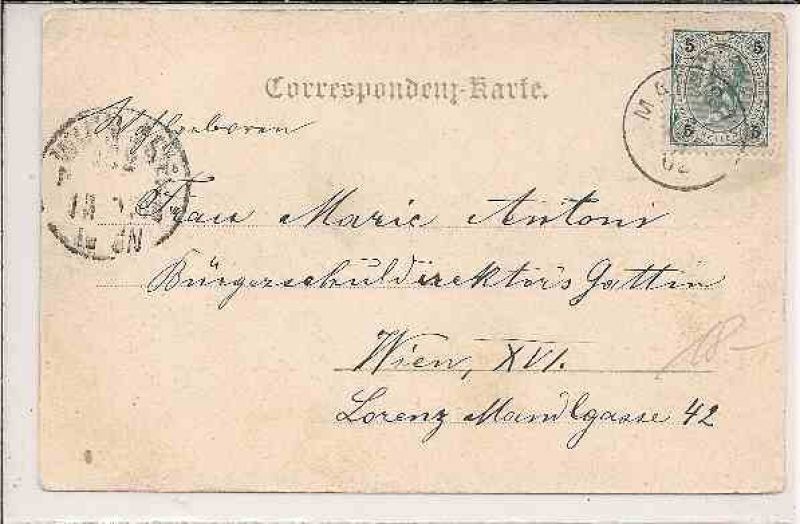 Correspondenz-Karte.
Wohlgeboren
Frau Marie Antoni
Bürgerschuldirektors Gattin
Wien, XVI.
Lorenz Mandlgasse 42
18-
5 5
5 5
02